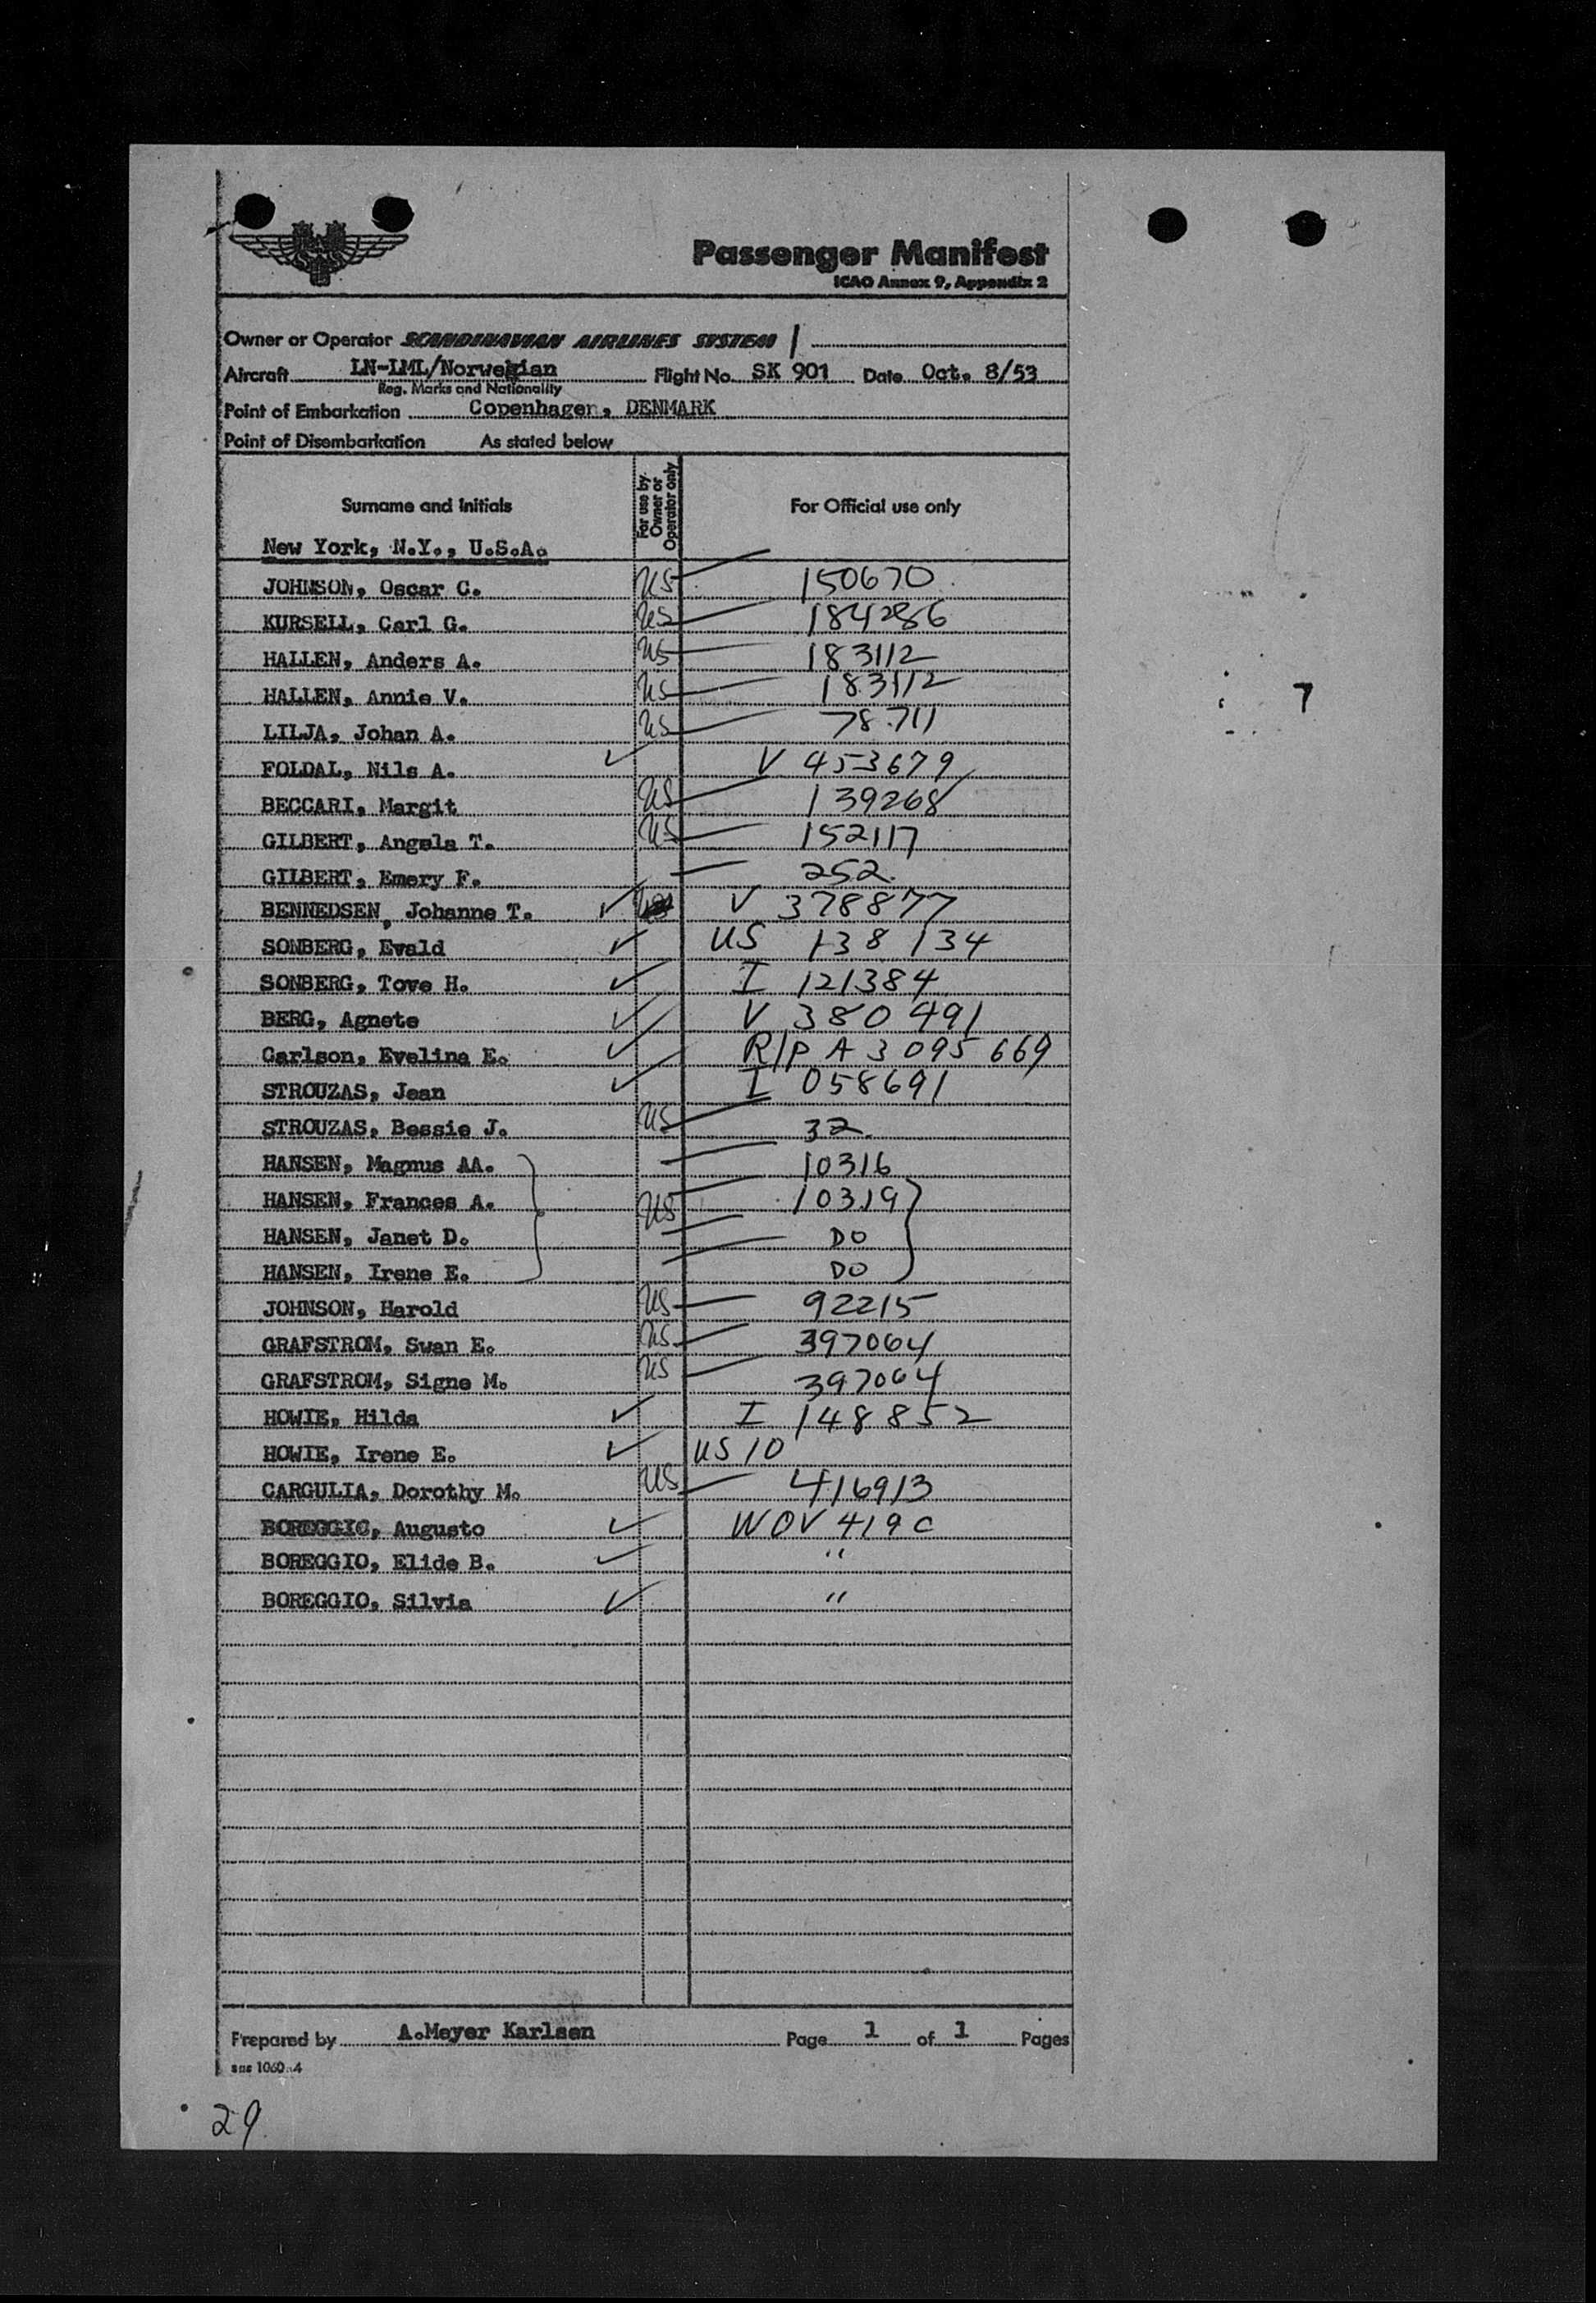 Passenger Manifest
ICAO Annex 9, Appendix 2
Owner or Operator SCANDINAVIAN AIRLINES SYSTEM
Aircraft LN-LML/Norwegian Flight No. SK 901 Date Oct. 8/53
Reg. Marks and Nationality
Point of Embarkation Copenhagen, DENMARK
Point of Disembarkation As stated below
Surname and Initials For use by Owner or Operator only For Official use only
New York, N.Y., U.S.A.
JOHNSON, Oscar C. US 150670
KURSELL, Carl G. US 184286
HALLEN, Anders A. US 183112
HALLEN, Annie V. US 183112
7
LILJA, Johan A. US 78711
FOLDAL, Nils A. ✓ V 453679
BECCARI, Margit US 139268
GILBERT, Angela T. US 152117
GILBERT, Emery F. 252
BENNEDSEN, Johanne T. ✓ V 378877
SONBERG, Evald ✓ US 138134
SONBERG, Tove H. ✓ I 121384
BERG, Agnete ✓ V 380491
Carlson, Evelina E. ✓ R/P A3095669
STROUZAS, Jean ✓ I 058691
STROUZAS, Bessie J. US 32
HANSEN, Magnus AA. 10316
HANSEN, Frances A. US 10319
HANSEN, Janet D. DO
HANSEN, Irene E. DO
JOHNSON, Harold US 92215
GRAFSTROM, Swan E. US 397064
GRAFSTROM, Signe M. US 397064
HOWIE, Hilda ✓ I 148852
HOWIE, Irene E. ✓ US 10
CARGULIA, Dorothy M. US 416913
BOREGGIO, Augusto ✓ WOV 419C
BOREGGIO, Elide B. ✓ "
BOREGGIO, Silvia ✓ "
Prepared by A.Meyer Karlsen Page 1 of 1 Pages
sas 1060.4
29